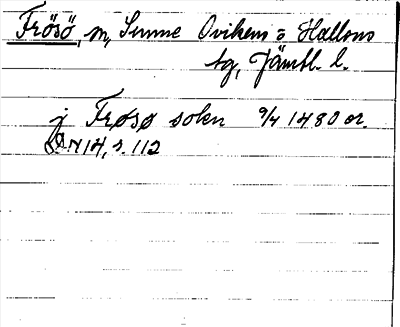 Frösö, sn, Sunne Ovikens o Hallens
tg, Jämtl. l.
j Frøsø sokn 9/4 1480 or.
14, s. 112